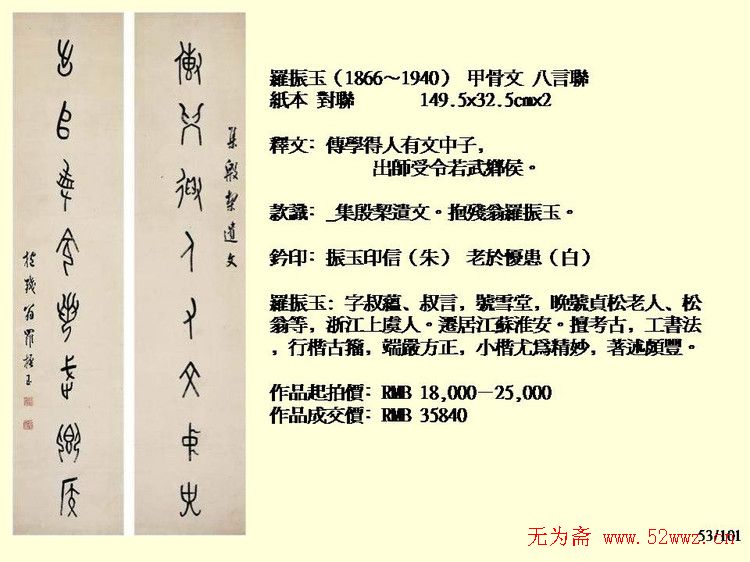 羅振玉（1866～1940） 甲骨文 八言聯
紙本 對聯 149.5x32.5cmx2
釋文：傳學得人有文中子，
出師受令若武鄉侯。
款識：_集殷栔遺文。抱殘翁羅振玉。
鈐印：振玉印信（朱） 老於憂患（白）
羅振玉：字叔蘊、叔言，號雪堂，晚號貞松老人、松
翁等，浙江上虞人。遷居江蘇淮安。擅考古，工書法
，行楷古籀，端嚴方正，小楷尤爲精妙，著述頗豐。
作品起拍價：RMB 18,000－25,000
作品成交價：RMB 35840
集殷栔遺文
抱殘翁羅振玉
53/101
无为斋 www.52wwz.cn